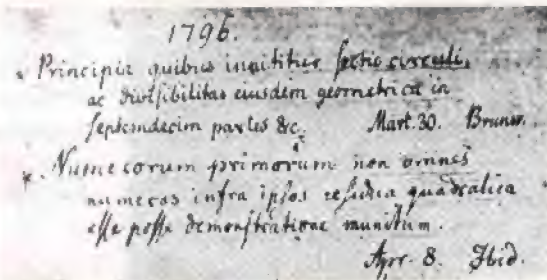 1796.
* Principia quibus innititur sectio circuli,
ac divisibilitas eiusdem geometrica in
septemdecim partes &c. Mart. 30. Brunsv.
* Numerorum primorum non omnes
numeros infra ipsos residua quadratica
esse posse demonstratione munitum.
Apr. 8. Ibid.